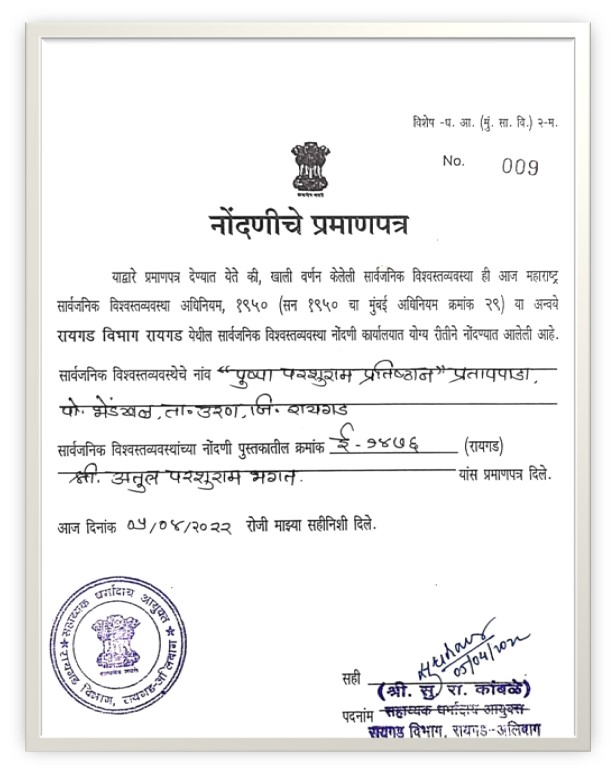 विशेष -ध. आ. (मुं. सा. वि.) २-म.
No. 009
नोंदणीचे प्रमाणपत्र
याद्वारे प्रमाणपत्र देण्यात येते की, खाली वर्णन केलेली सार्वजनिक विश्वस्तव्यवस्था ही आज महाराष्ट्र
सार्वजनिक विश्वस्तव्यवस्था अधिनियम, १९५० (सन १९५० चा मुंबई अधिनियम क्रमांक २९) या अन्वये
रायगड विभाग रायगड येथील सार्वजनिक विश्वस्तव्यवस्था नोंदणी कार्यालयात योग्य रीतीने नोंदण्यात आलेली आहे.
सार्वजनिक विश्वस्तव्यवस्थेचे नांव "पुष्पा परशुराम प्रतिष्ठान" प्रतापपाडा,
पो. भेंडखल, ता. उरण, जि. रायगड
सार्वजनिक विश्वस्तव्यवस्थांच्या नोंदणी पुस्तकातील क्रमांक ई-१४७६ (रायगड)
श्री. अतुल परशुराम भगत. यांस प्रमाणपत्र दिले.
आज दिनांक ०५/०४/२०२२ रोजी माझ्या सहीनिशी दिले.
सहाय्यक धर्मादाय आयुक्त
रायगड विभाग, रायगड-अलिबाग
05/04/2022
सही
(श्री. सु. रा. कांबळे)
पदनांम सहाय्यक धर्मादाय आयुक्त
रायगड विभाग, रायगड-अलिबाग